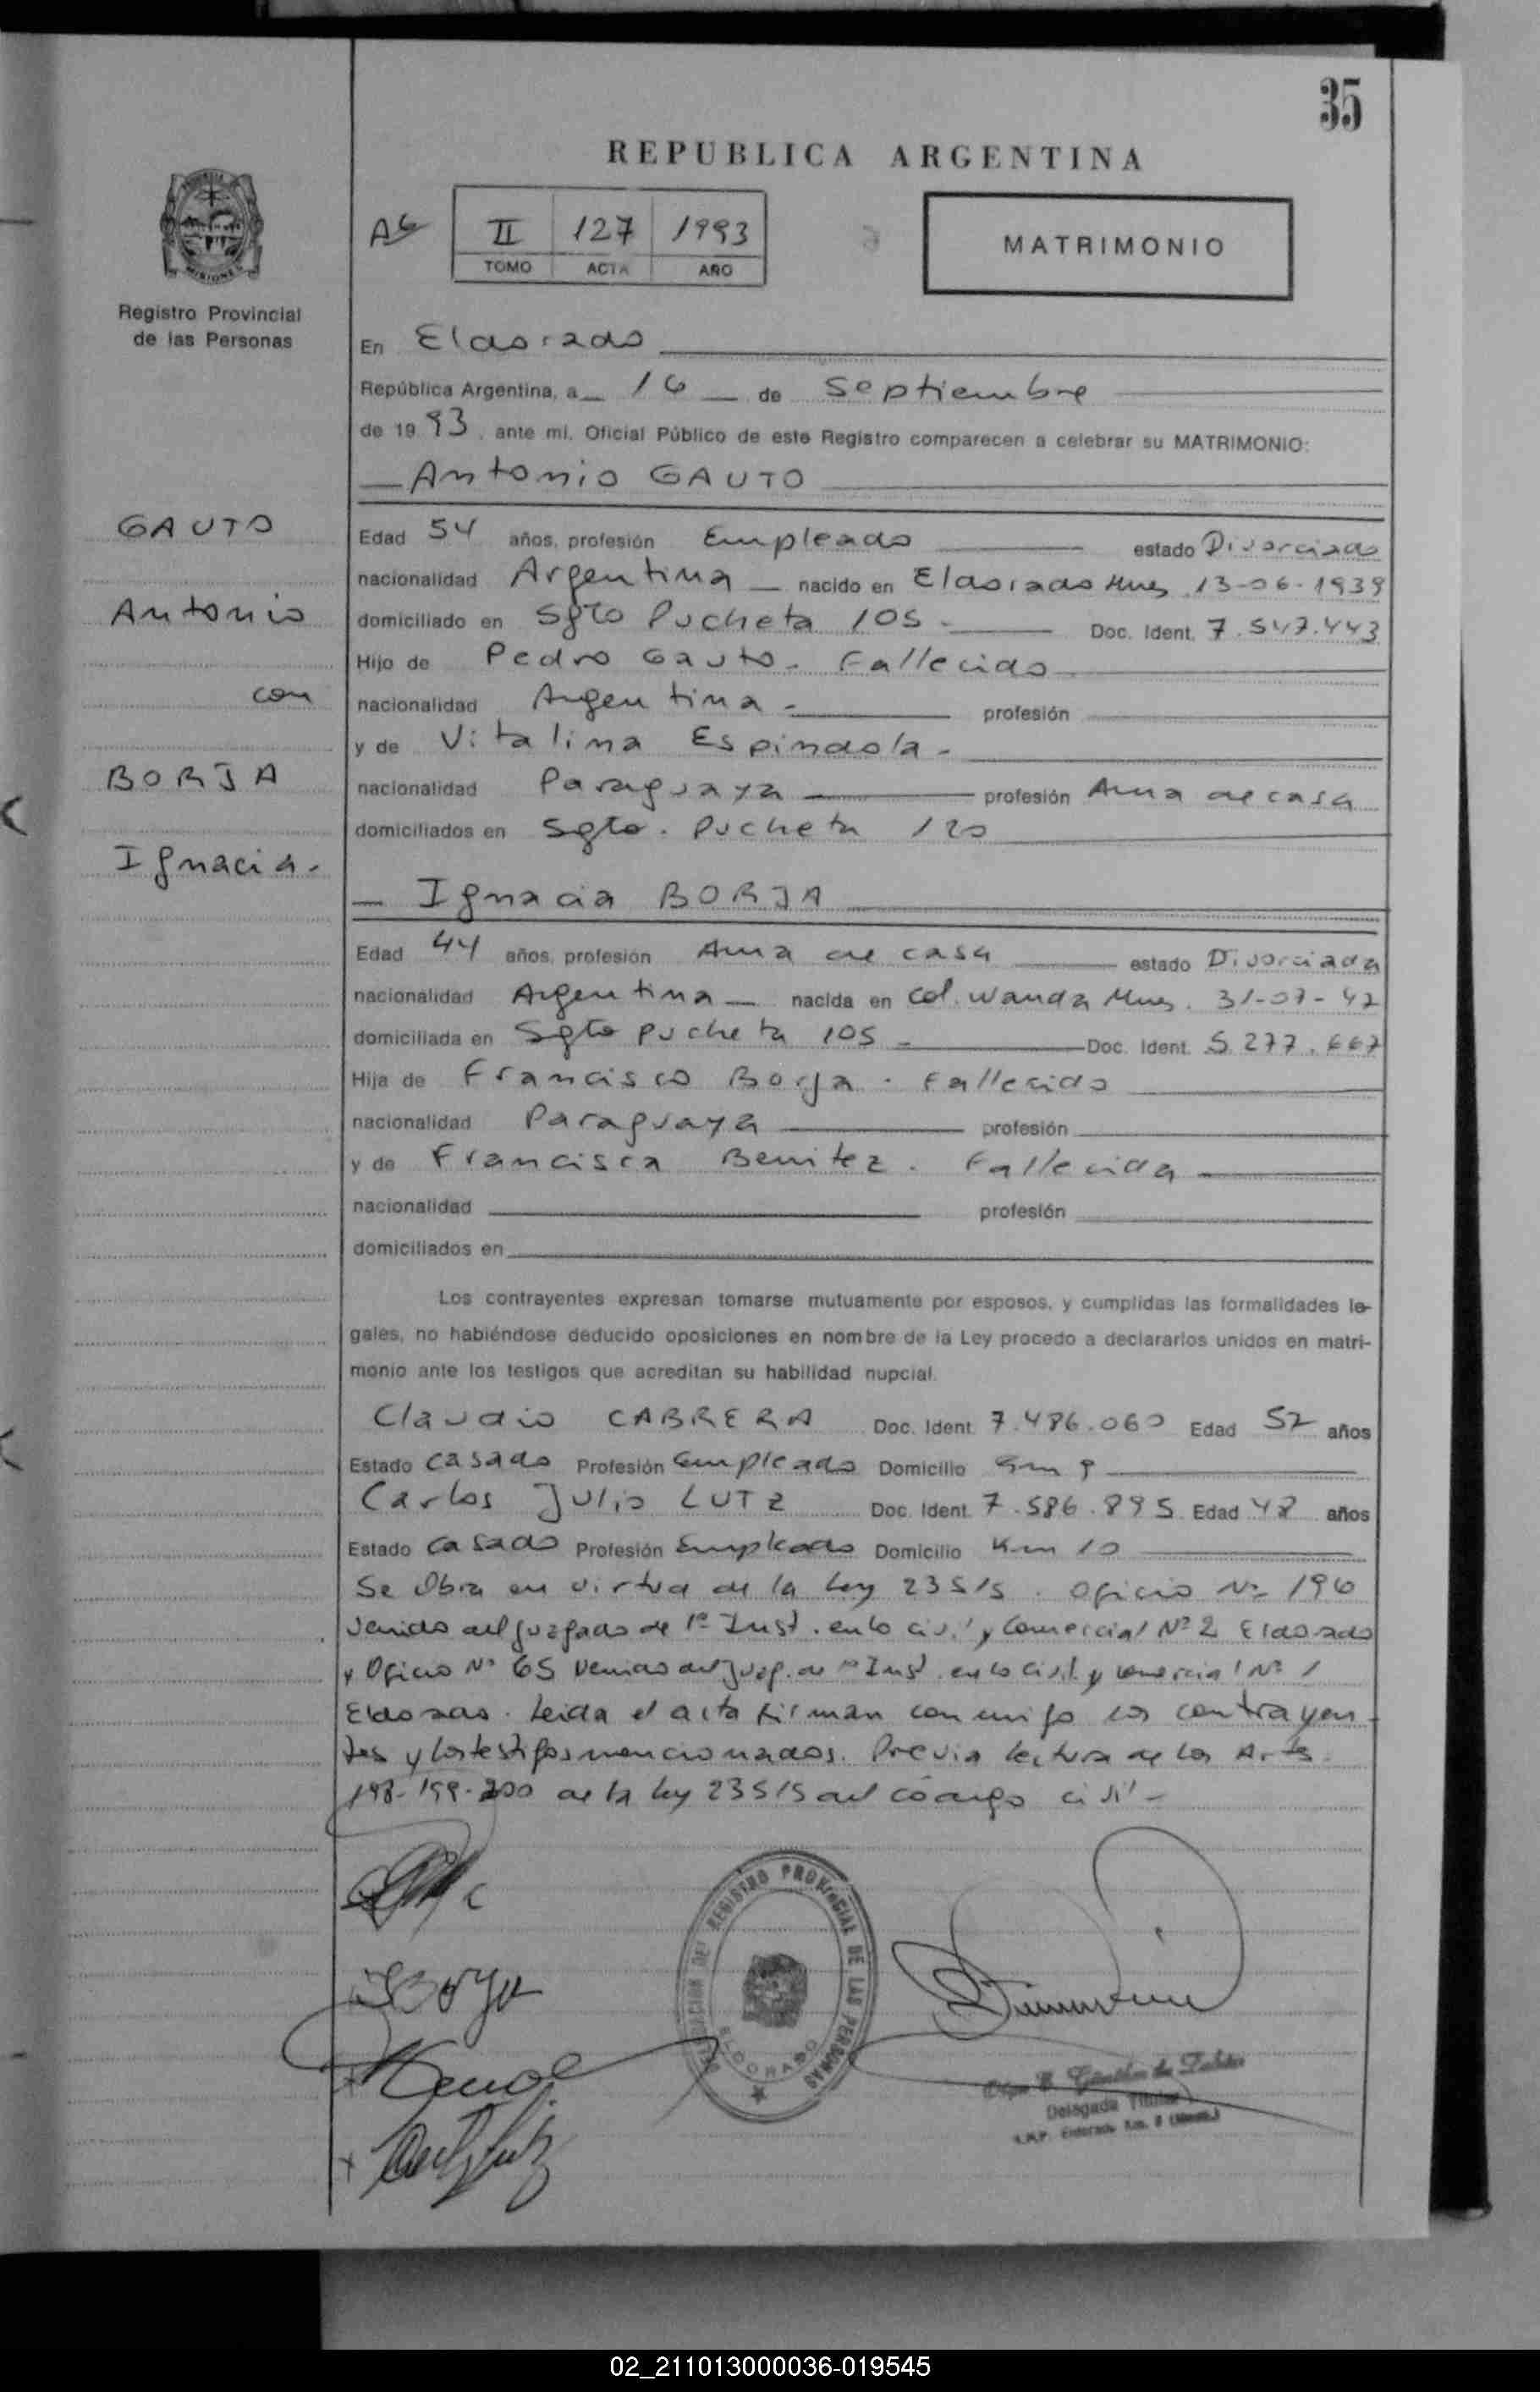 35
REPUBLICA ARGENTINA
II 127 1993
TOMO ACTA AÑO
MATRIMONIO
MISIONES
Registro Provincial
de las Personas
En Eldorado
República Argentina, a 16 de Septiembre
de 1993, ante mí, Oficial Público de este Registro comparecen a celebrar su MATRIMONIO:
Antonio GAUTO
GAUTO
Antonio
con
BORJA
Ignacia.
Edad 54 años, profesión Empleado estado Divorciado
nacionalidad Argentina nacido en Eldorado Mnes 13-06-1939
domiciliado en Sgto Pucheta 105 - Doc. Ident. 7.547.443
Hijo de Pedro Gauto - Fallecido
nacionalidad Argentina - profesión
y de Vitalina Espindola -
nacionalidad Paraguaya profesión Ama de casa
domiciliados en Sgto. Pucheta 120
Ignacia BORJA
Edad 44 años, profesión Ama de casa estado Divorciada
nacionalidad Argentina nacida en Col. Wanda Mnes. 31-07-47
domiciliada en Sgto Pucheta 105 - Doc. Ident. 5.277.667
Hija de Francisco Borja . Fallecido
nacionalidad Paraguaya profesión
y de Francisca Benitez . Fallecida
nacionalidad profesión
domiciliados en
Los contrayentes expresan tomarse mutuamente por esposos, y cumplidas las formalidades le-
gales, no habiéndose deducido oposiciones en nombre de la Ley procedo a declararlos unidos en matri-
monio ante los testigos que acreditan su habilidad nupcial.
Claudio CABRERA Doc. Ident 7.486.060 Edad 52 años
Estado casado Profesión Empleado Domicilio Km 9
Carlos Julio LUTZ Doc. Ident. 7.586.895 Edad 48 años
Estado casado Profesión Empleado Domicilio Km 10
Se Obra en virtud de la Ley 23515 . Oficio Nº 196
venido del Juzgado de 1ª Inst. en lo civil y Comercial Nº 2 Eldorado
y Oficio Nº 65 venido del Juzg. de 1ª Inst. en lo Civil y Comercial Nº 1
Eldorado. Leida el acta firman conmigo los contrayen-
tes y los testigos mencionados. Previa lectura de los Arts.
198-199-200 de la Ley 23515 del código civil -
REGISTRO PROVINCIAL DE LAS PERSONAS
ELDORADO
Borja
Delegada Titular
02_211013000036-019545